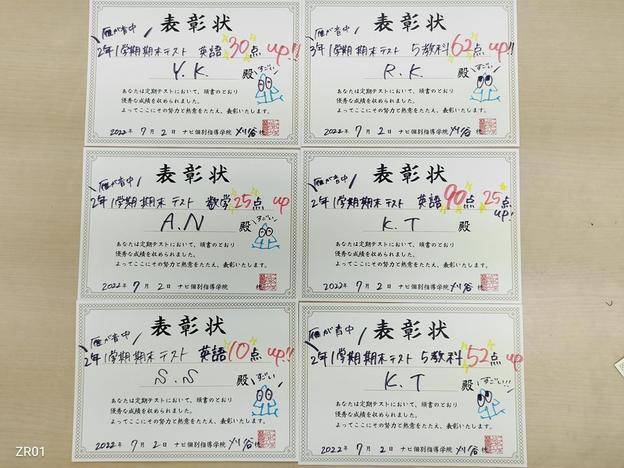 表彰状
雁が音中
2年1学期期末テスト 英語30点 up!!
Y.K. 殿
すごい
あなたは定期テストにおいて、頭書のとおり
優秀な成績を収められました。
よってここにその努力と熱意をたたえ、表彰いたします。
2022年 7月 2日 ナビ個別指導学院 刈谷校
表彰状
雁が音中
3年1学期期末テスト 5教科62点 up!!
R.K. 殿
すごい
あなたは定期テストにおいて、頭書のとおり
優秀な成績を収められました。
よってここにその努力と熱意をたたえ、表彰いたします。
2022年 7月 2日 ナビ個別指導学院 刈谷校
表彰状
雁が音中
2年1学期期末テスト 数学25点 up
A.N 殿
すごい
あなたは定期テストにおいて、頭書のとおり
優秀な成績を収められました。
よってここにその努力と熱意をたたえ、表彰いたします。
2022年 7月 2日 ナビ個別指導学院 校
表彰状
雁が音中
2年1学期期末テスト 英語90点 25点 up!
K.T 殿
あなたは定期テストにおいて、頭書のとおり
優秀な成績を収められました。
よってここにその努力と熱意をたたえ、表彰いたします。
2022年 7月 2日 ナビ個別指導学院 刈谷校
表彰状
雁が音中
2年1学期期末テスト 英語10点 up!!
S.S 殿
すごい
あなたは定期テストにおいて、頭書のとおり
優秀な成績を収められました。
よってここにその努力と熱意をたたえ、表彰いたします。
2022年 7月 2日 ナビ個別指導学院 刈谷校
表彰状
雁が音中
2年1学期期末テスト 5教科52点 up
K.T 殿
すごい!!!
あなたは定期テストにおいて、頭書のとおり
優秀な成績を収められました。
よってここにその努力と熱意をたたえ、表彰いたします。
2022年 7月 2日 ナビ個別指導学院 刈谷校
ZR01